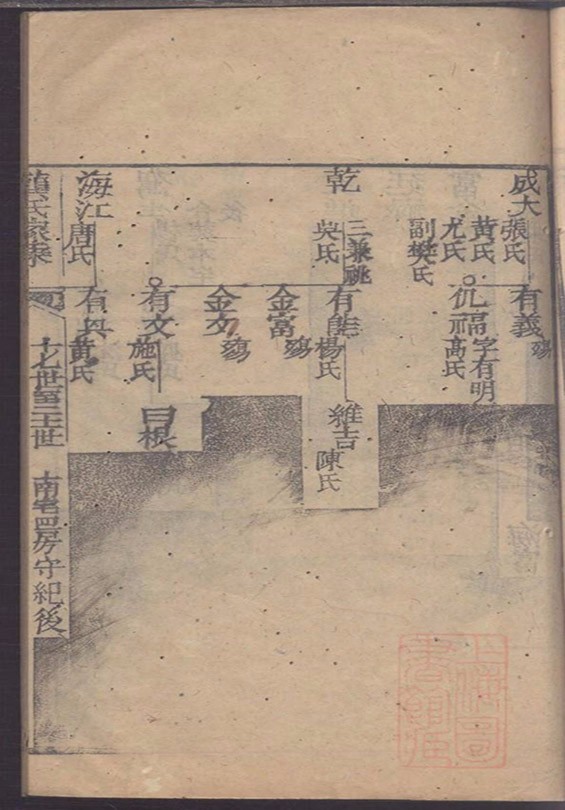 成大
張氏
黄氏
尤氏
副樊氏
有義
殤
仉福
字有明
高氏
乾
三兼祧
吳氏
有熊
楊氏
維吉
陳氏
金富
殤
金文
殤
有文
施氏
曰根
海江
唐氏
有兵
黄氏
氏家乘
世至二十世
南宅四房守紀後